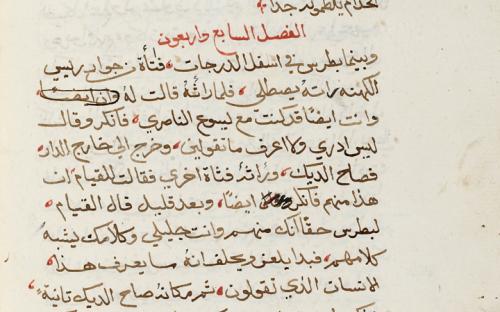 كلام يلطموه جدا
الفصل السابع واربعون
وبينما بطرس في اسفل الدرجات فتأة من جوار رئيس
الكهنه راته يصطلي فلما راتْهُ قالت له وان ايضًا
وانت ايضًا قد كنت مع يسوع الناصري فانكر وقال
ليس ادري ولا اعرف ما تقولين وخرج الي خارج الدار
فصاح الديك وراتهُ فتاة اخري فقالت للقيام ان
هذا منهم فانكر ايضًا وبعد قليل قال القيام
لبطرس حقًا انك منهم وانت جليلي وكلامك يشبه
كلامهم فبدا يلعن ويحلف انه ما يعرف هذا
الانسان الذي تقولون ثم مكانهُ صاح الديك ثانيةً